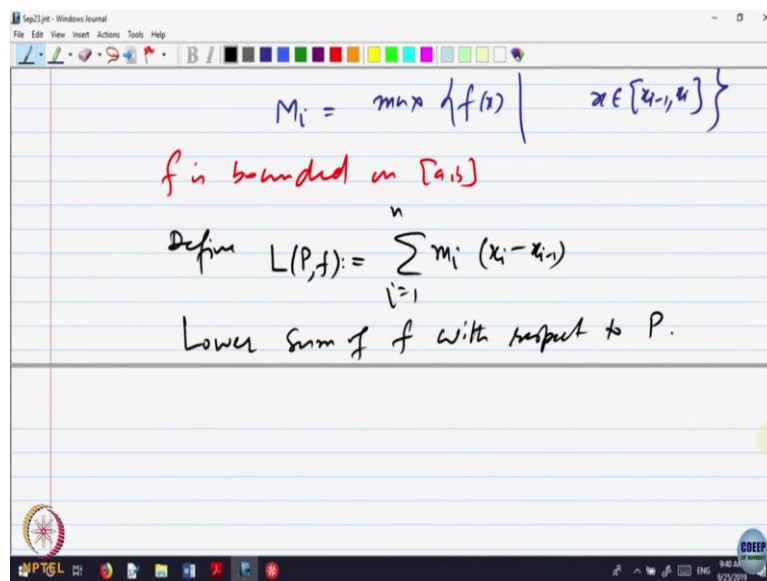 Sep23.jnt - Windows Journal
File Edit View Insert Actions Tools Help
B I
M_i = max { f(x) | x ∈ [x_{i-1}, x_i] }
f is bounded on [a,b]
Define L(P,f) := \sum_{i=1}^{n} m_i (x_i - x_{i-1})
Lower Sum of f with respect to P.
NPTEL
ENG
9:40 AM
9/25/2019
CDEEP
IIT BOMBAY